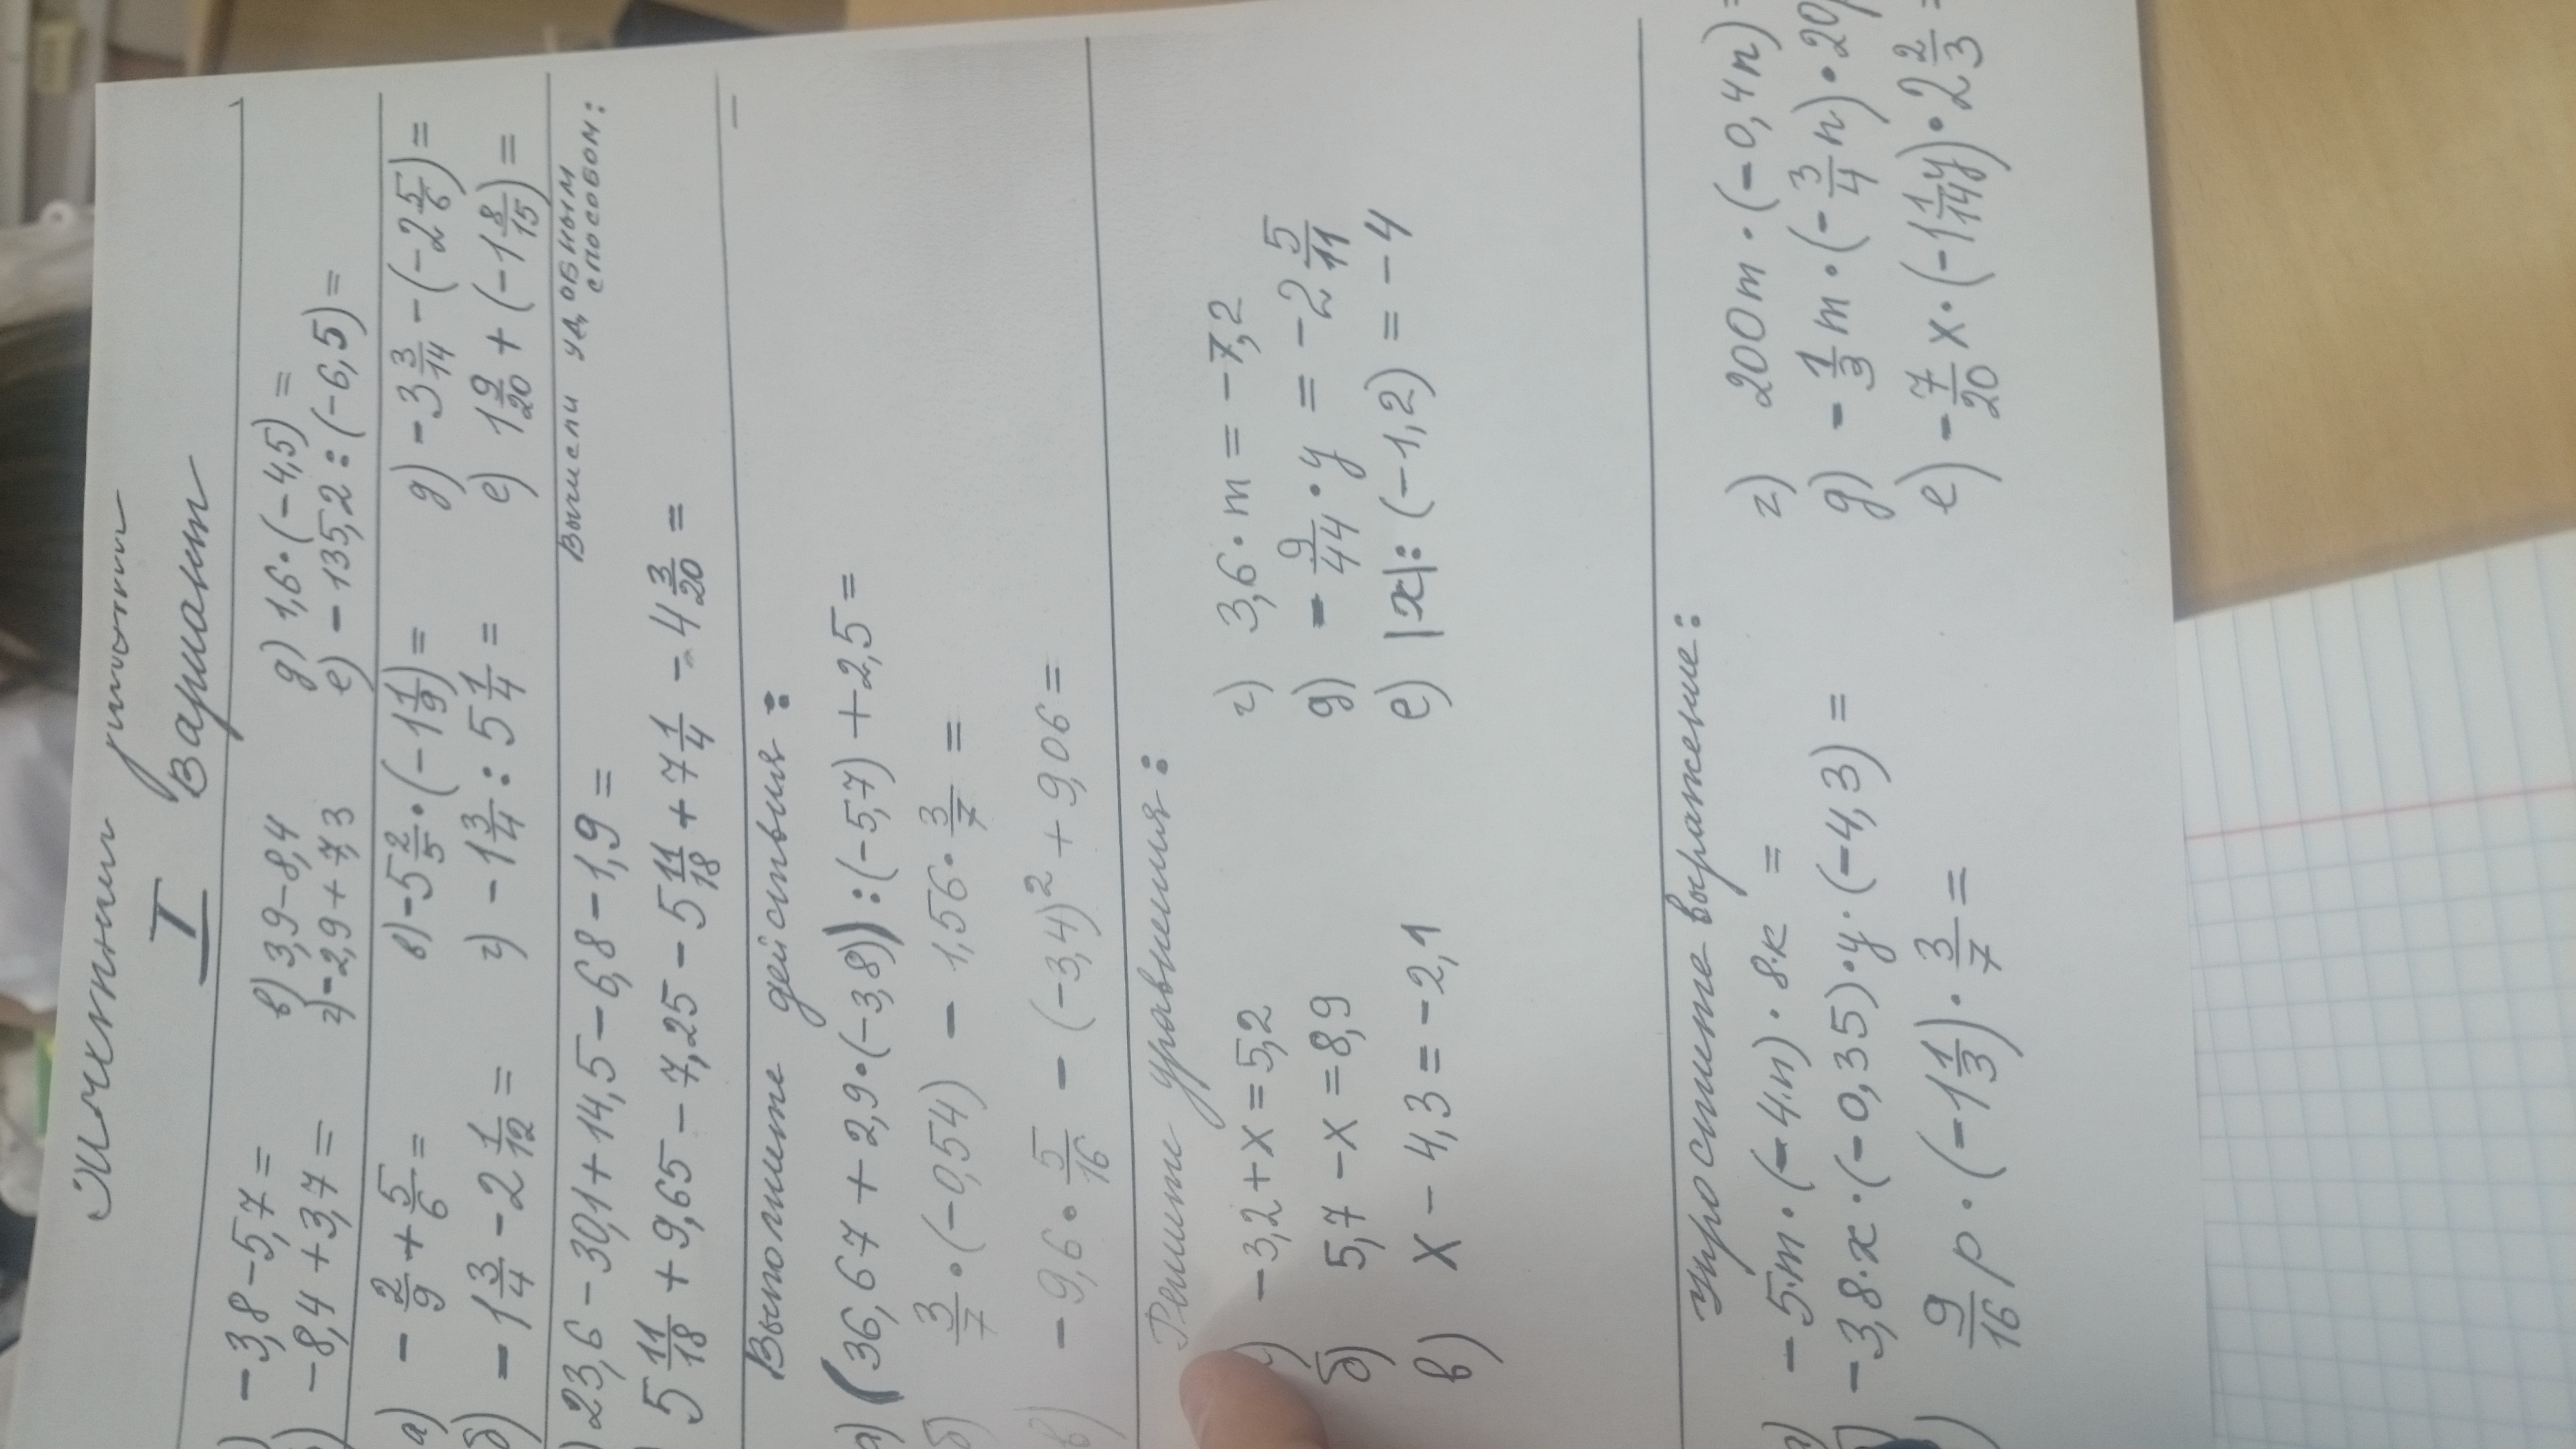 I Вариант
-3,8-5,7= в) 3,9-8,4 д) 1,6·(-4,5)=
-8,4+3,7= г) -2,9+7,3 е) -135,2:(-6,5)=
а) -2/9+5/6= в) -5 2/5·(-1 1/9)= д) -3 3/14-(-2 5/6)=
б) -1 3/4-2 1/12= г) -1 3/4:5 1/4= е) 1 9/20+(-1 8/15)=
Вычисли удобным способом:
23,6-30,1+14,5-6,8-1,9=
5 11/18+9,65-7,25-5 11/18+7 1/4-4 3/20=
Выполните действия:
а) (36,67+2,9·(-3,8)):(-5,7)+2,5=
б) 3/7·(-0,54)-1,56·3/7=
в) -9,6·5/16-(-3,4)²+9,06=
Решите уравнения:
-3,2+x=5,2 г) 3,6·m=-7,2
б) 5,7-x=8,9 д) -9/44·y=-2 5/11
в) x-4,3=-2,1 е) |x|:(-1,2)=-4
Упростите выражение:
-5·m·(-4·n)·8·к= г) 200m·(-0,4n)=
-3,8·x·(-0,35)·y·(-4,3)= д) -1/3m·(-3/4n)·20
9/16p·(-1 1/3)·3/7= е) -7/20x·(-1 1/14y)·2 2/3=